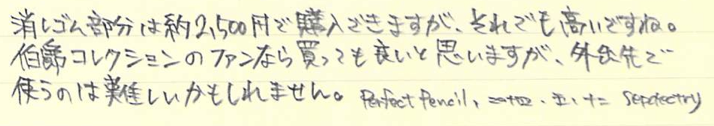 消しゴム部分は約2,500円で購入できますが、それでも高いですね。
伯爵コレクションのファンなら買っても良いと思いますが、外出先で
使うのは難しいかもしれません。 Perfect Pencil,